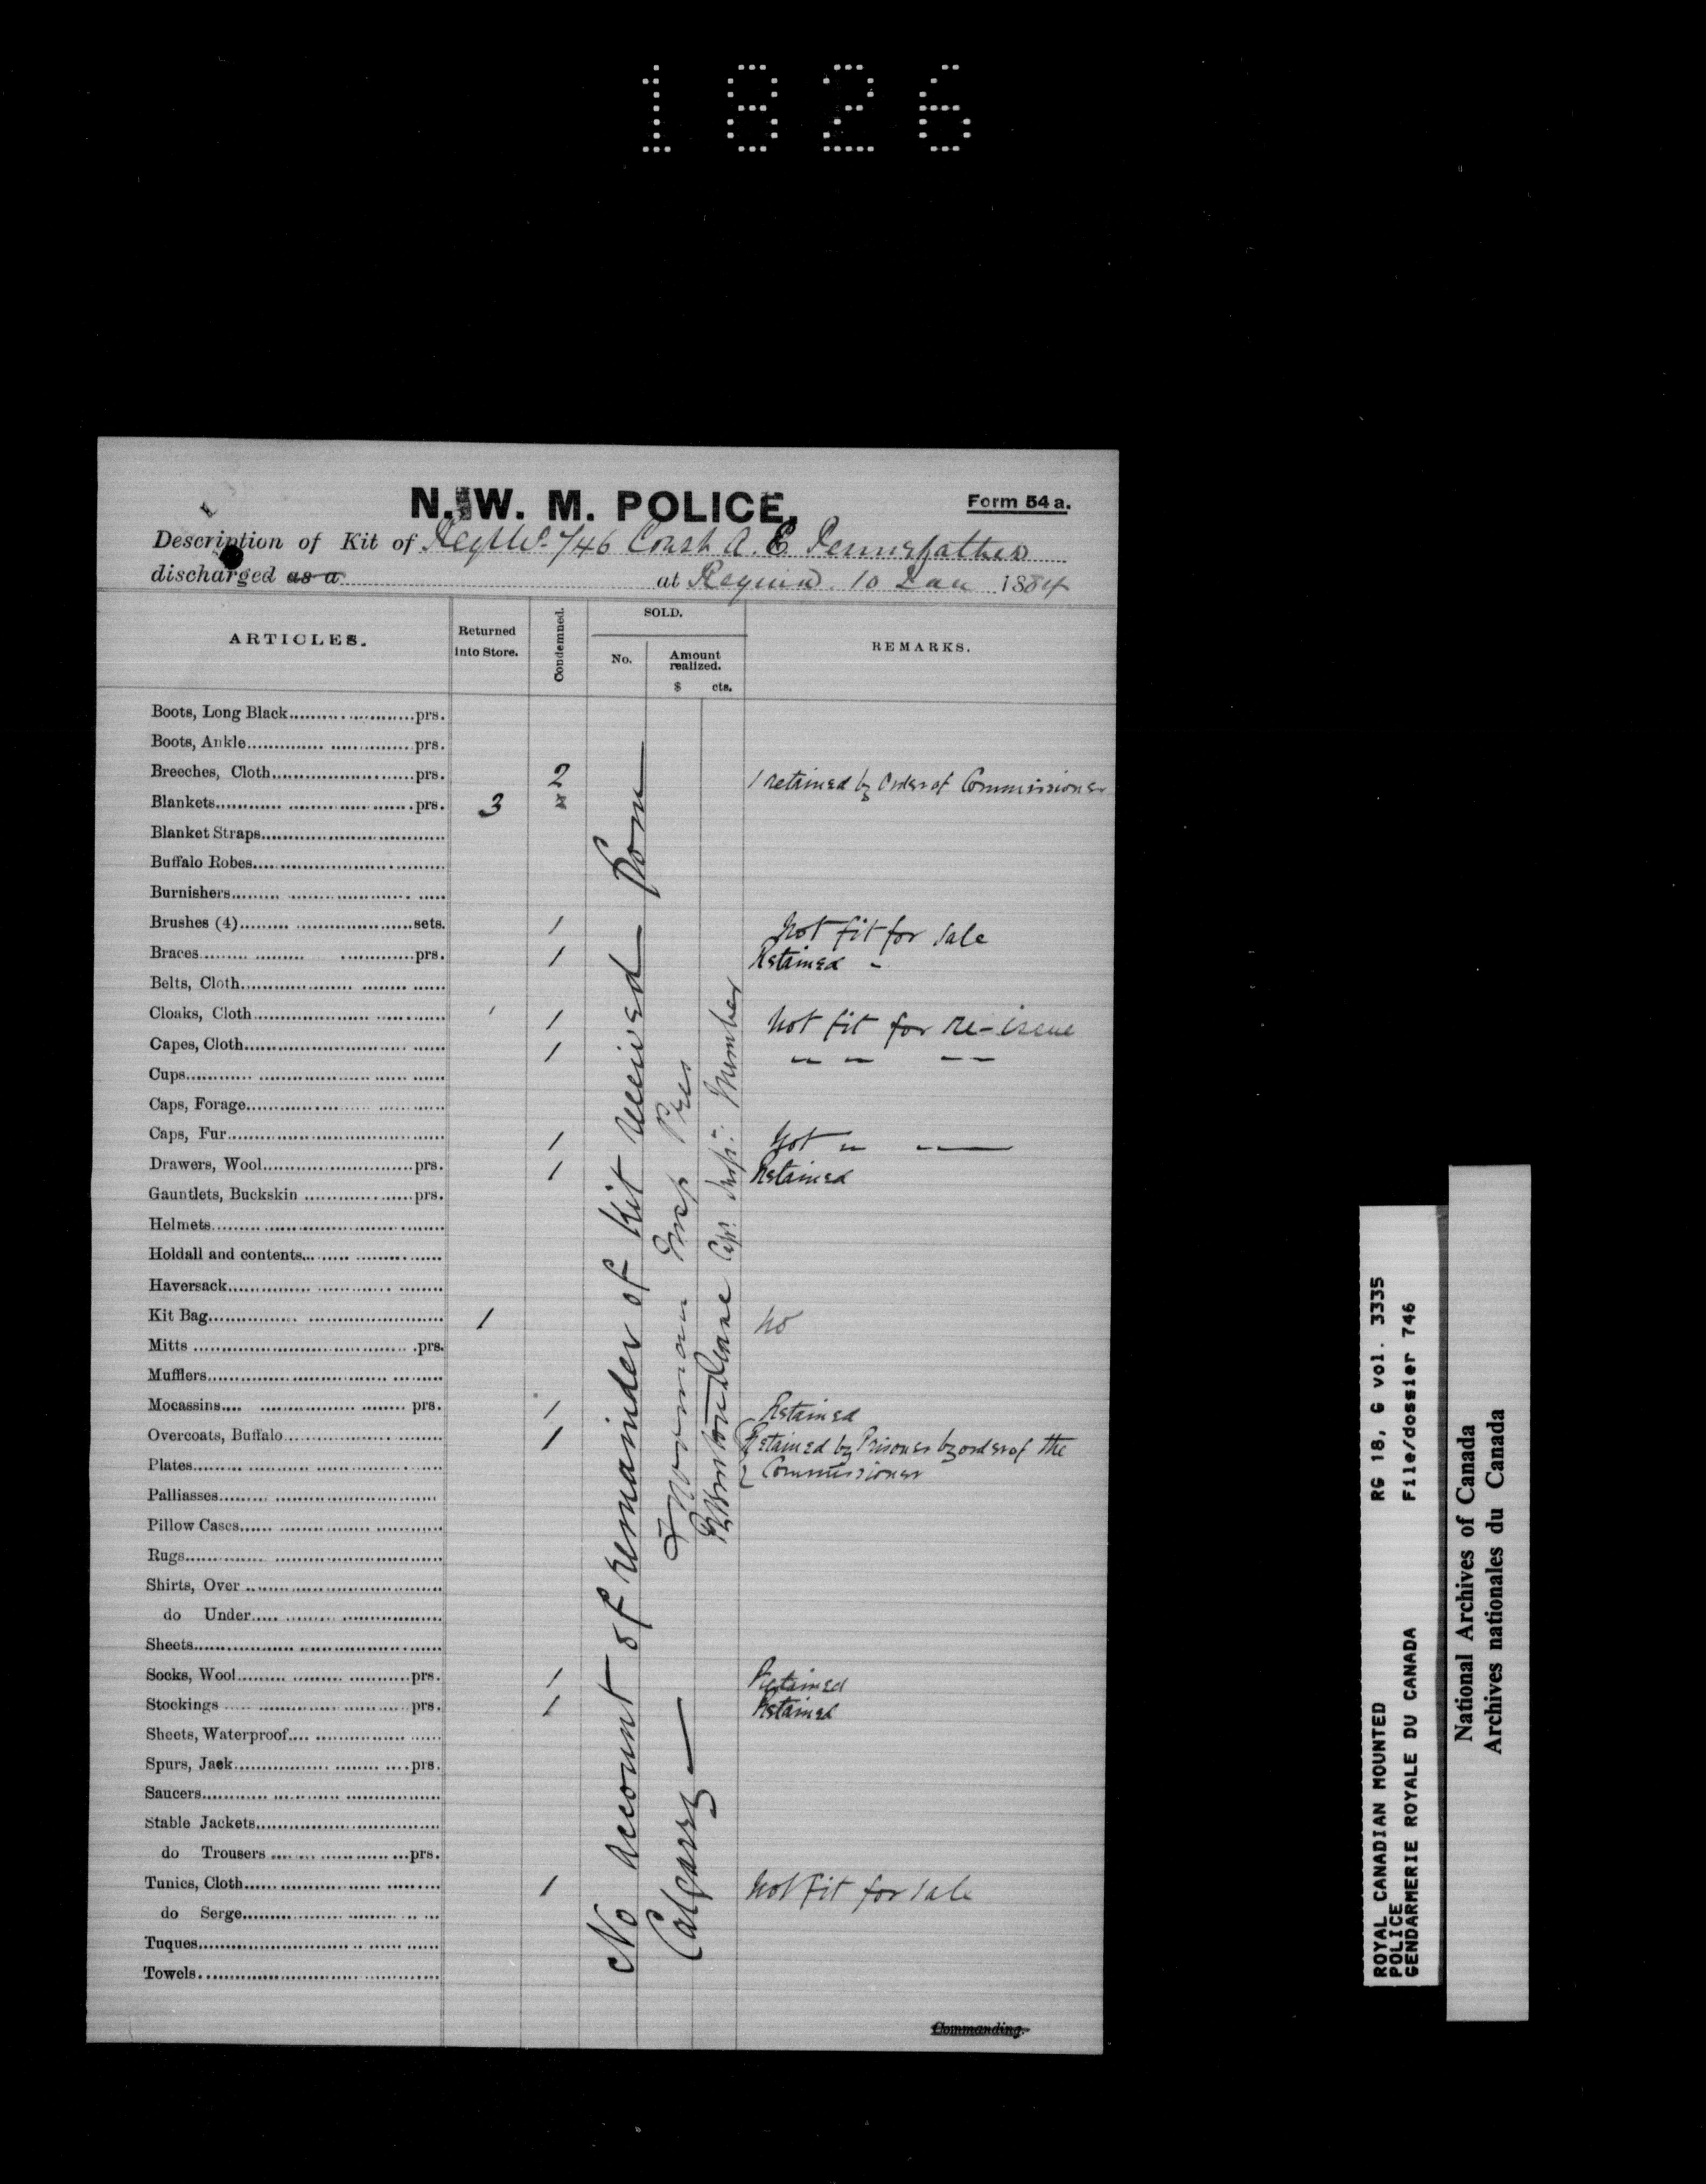 1826
N. W. M. POLICE.
Form 54 a.
Description of Kit of Regt No 746 Const A. E Pennefather
discharged as a at Regina 10 Jan 1884
ARTICLES.
Returned into Store.
Condemned.
SOLD.
No.
Amount realized.
$ cts.
REMARKS.
Boots, Long Black prs.
Boots, Ankle prs.
Breeches, Cloth prs. 2 1 retained by Order of Commissioner
Blankets prs. 3
Blanket Straps
Buffalo Robes
Burnishers
Brushes (4) sets. 1 Not fit for sale
Braces prs. 1 Retained
Belts, Cloth
Cloaks, Cloth 1 Not fit for re-issue
Capes, Cloth 1 " " " "
Cups
Caps, Forage
Caps, Fur 1 Not " "
Drawers, Wool prs. 1 Retained
Gauntlets, Buckskin prs.
Helmets
Holdall and contents
Haversack
Kit Bag 1 No
Mitts prs.
Mufflers
Mocassins prs. 1 Retained
Overcoats, Buffalo 1 Retained by Prisoner by order of the
Plates Commissioner
Palliasses
Pillow Cases
Rugs
Shirts, Over
do Under
Sheets
Socks, Wool prs. 1 Retained
Stockings prs. 1 Retained
Sheets, Waterproof
Spurs, Jack prs.
Saucers
Stable Jackets
do Trousers prs.
Tunics, Cloth 1 Not fit for sale
do Serge
Tuques
Towels
No account of remainder of Kit received from
Calgary
Norman Insp Pres
Burton Deane Capt. Insp. Member
Commanding.
ROYAL CANADIAN MOUNTED RG 18, G vol. 3335
POLICE
GENDARMERIE ROYALE DU CANADA File/dossier 746
National Archives of Canada
Archives nationales du Canada